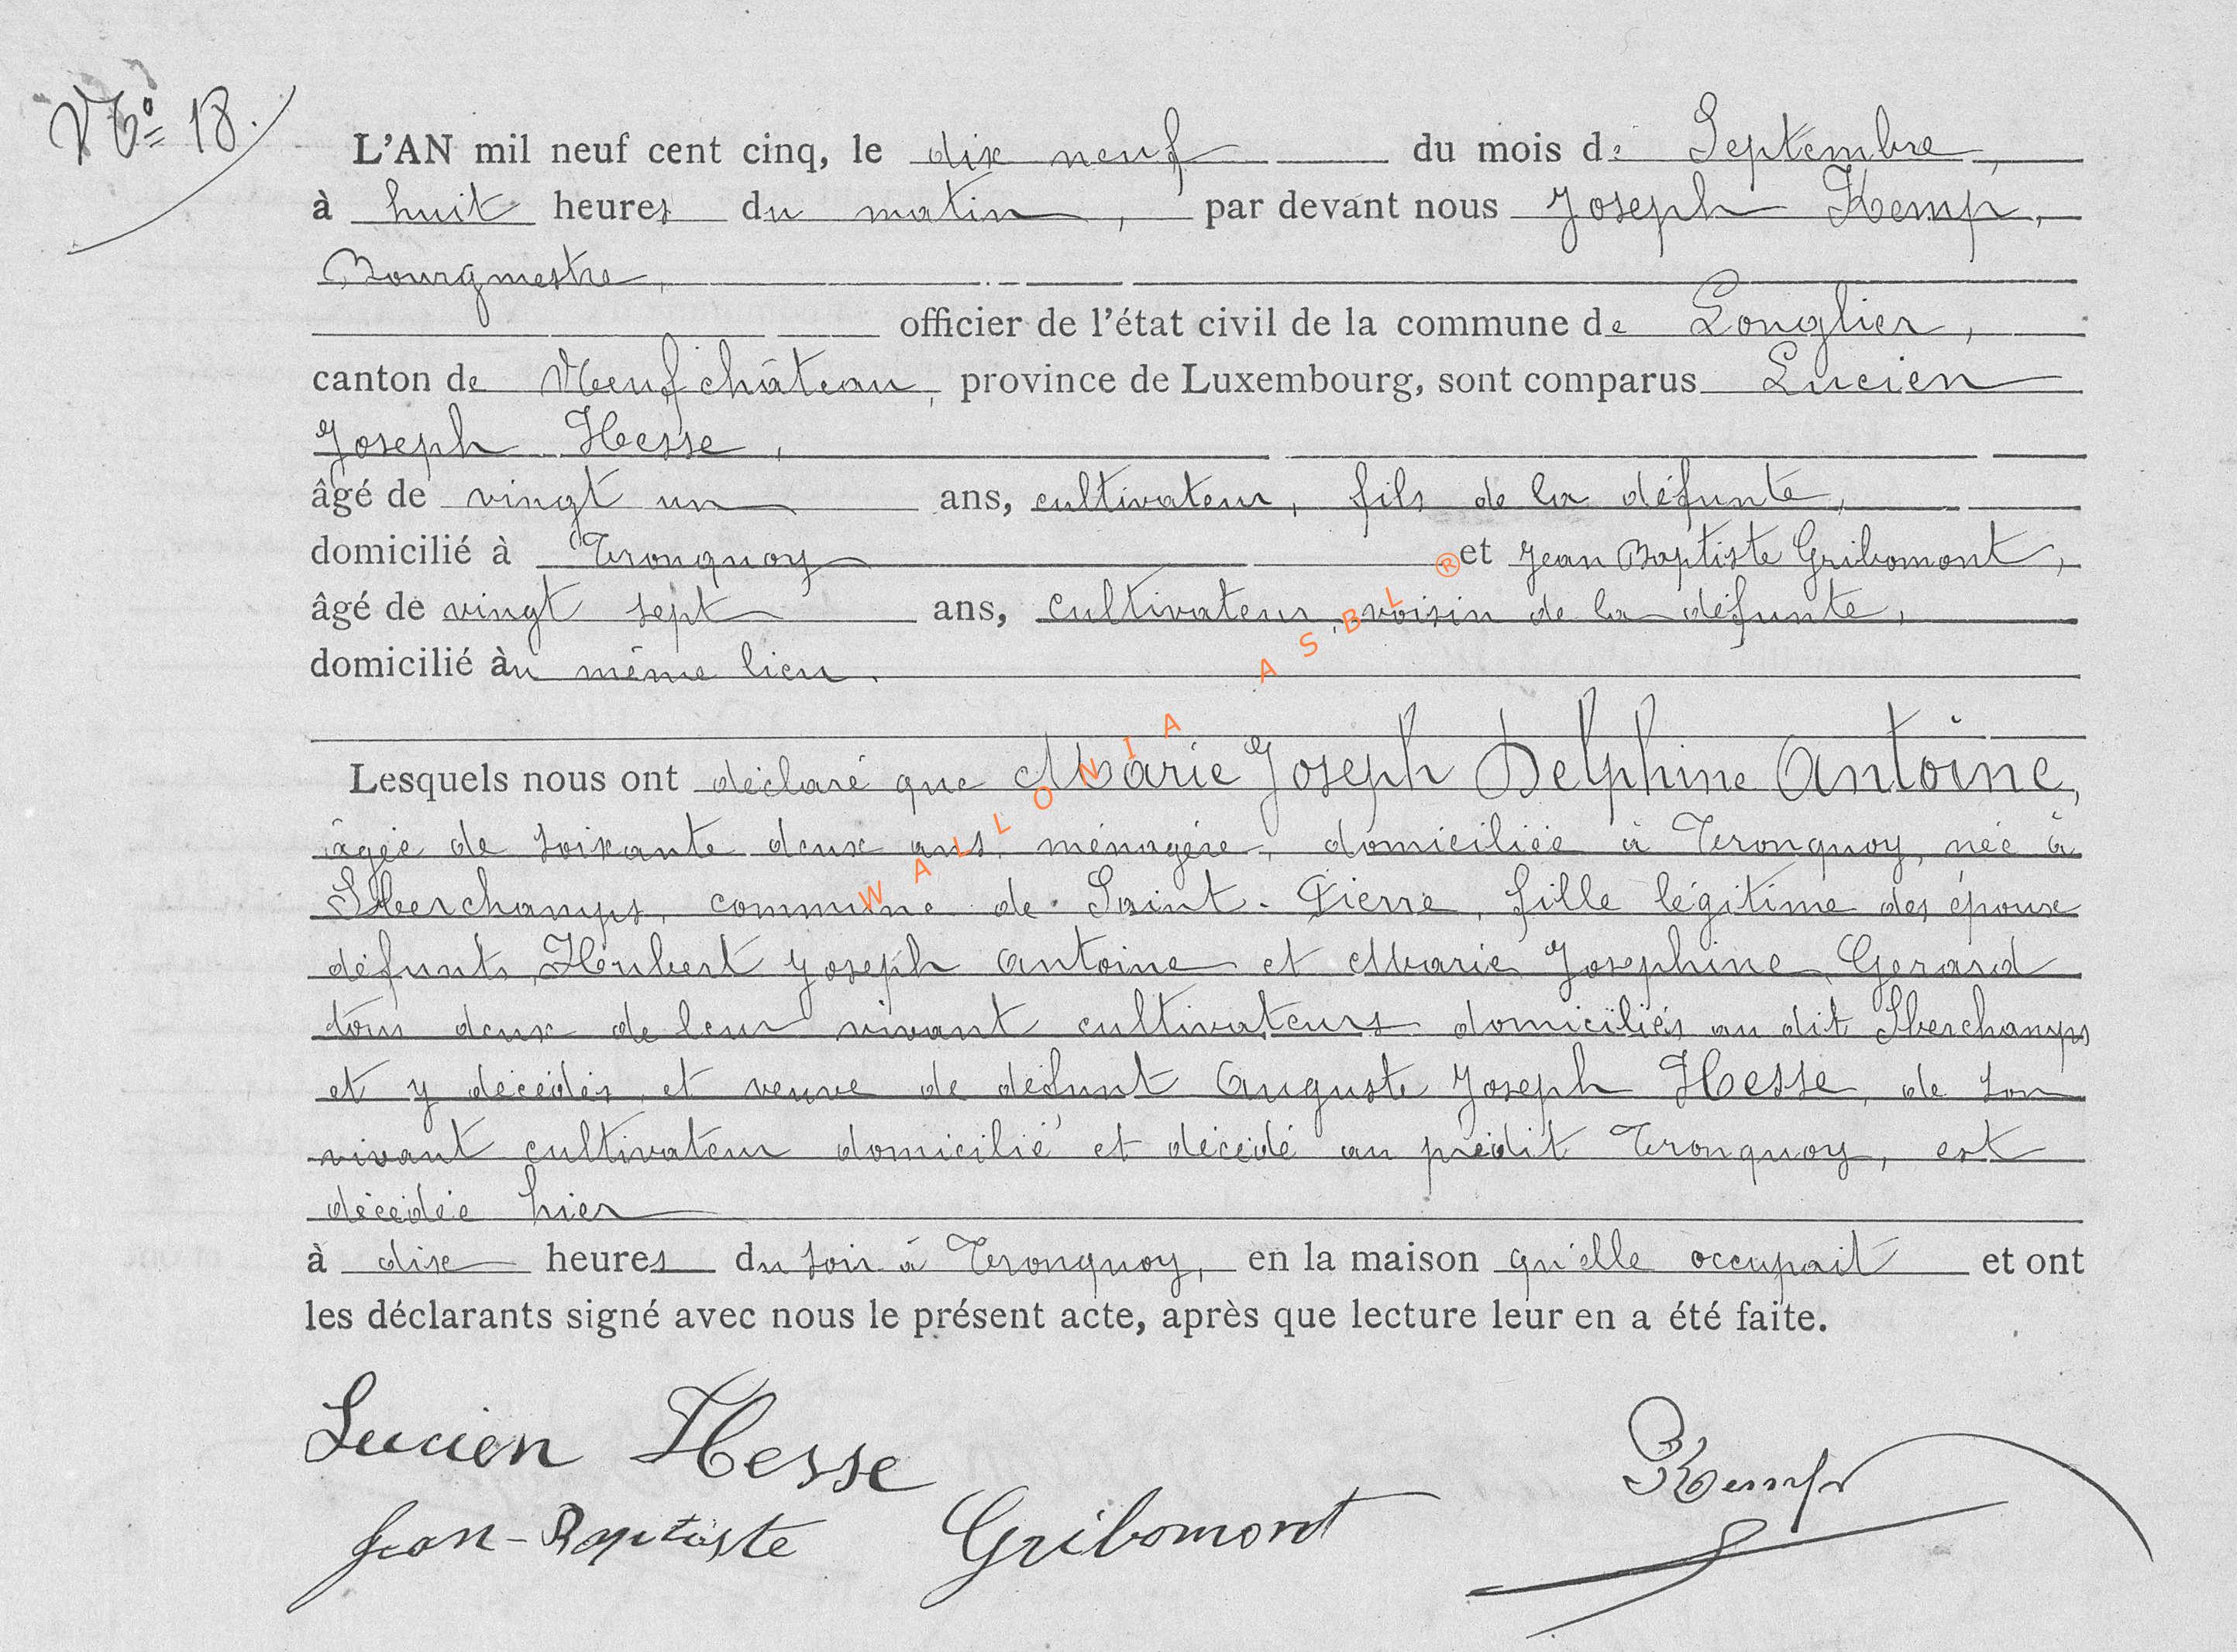 N° 18.
L'AN mil neuf cent cinq, le dix neuf du mois de Septembre,
à huit heures du matin, par devant nous Joseph Kemp,
Bourgmestre,
officier de l'état civil de la commune de Longlier,
canton de Neufchâteau, province de Luxembourg, sont comparus Lucien
Joseph Hesse,
âgé de vingt un ans, cultivateur, fils de la défunte,
domicilié à Tronquoy et Jean Baptiste Gribomont,
âgé de vingt sept ans, cultivateur, voisin de la défunte,
domicilié au même lieu.
Lesquels nous ont déclaré que Marie Joseph Delphine Antoine,
âgée de soixante deux ans, ménagère, domiciliée à Tronquoy, née à
Sberchamps, commune de Saint-Pierre, fille légitime des époux
défunts Hubert Joseph Antoine et Marie Josephine Gerard
tous deux de leur vivant cultivateurs domiciliés au dit Sberchamps
et y décédés, et veuve de défunt Auguste Joseph Hesse, de son
vivant cultivateur domicilié et décédé au prédit Tronquoy, est
décédée hier
à dix heures du soir à Tronquoy, en la maison qu'elle occupait et ont
les déclarants signé avec nous le présent acte, après que lecture leur en a été faite.
Lucien Hesse
Jean-Baptiste Gribomont
Kemp
WALLONIA ASBL ®